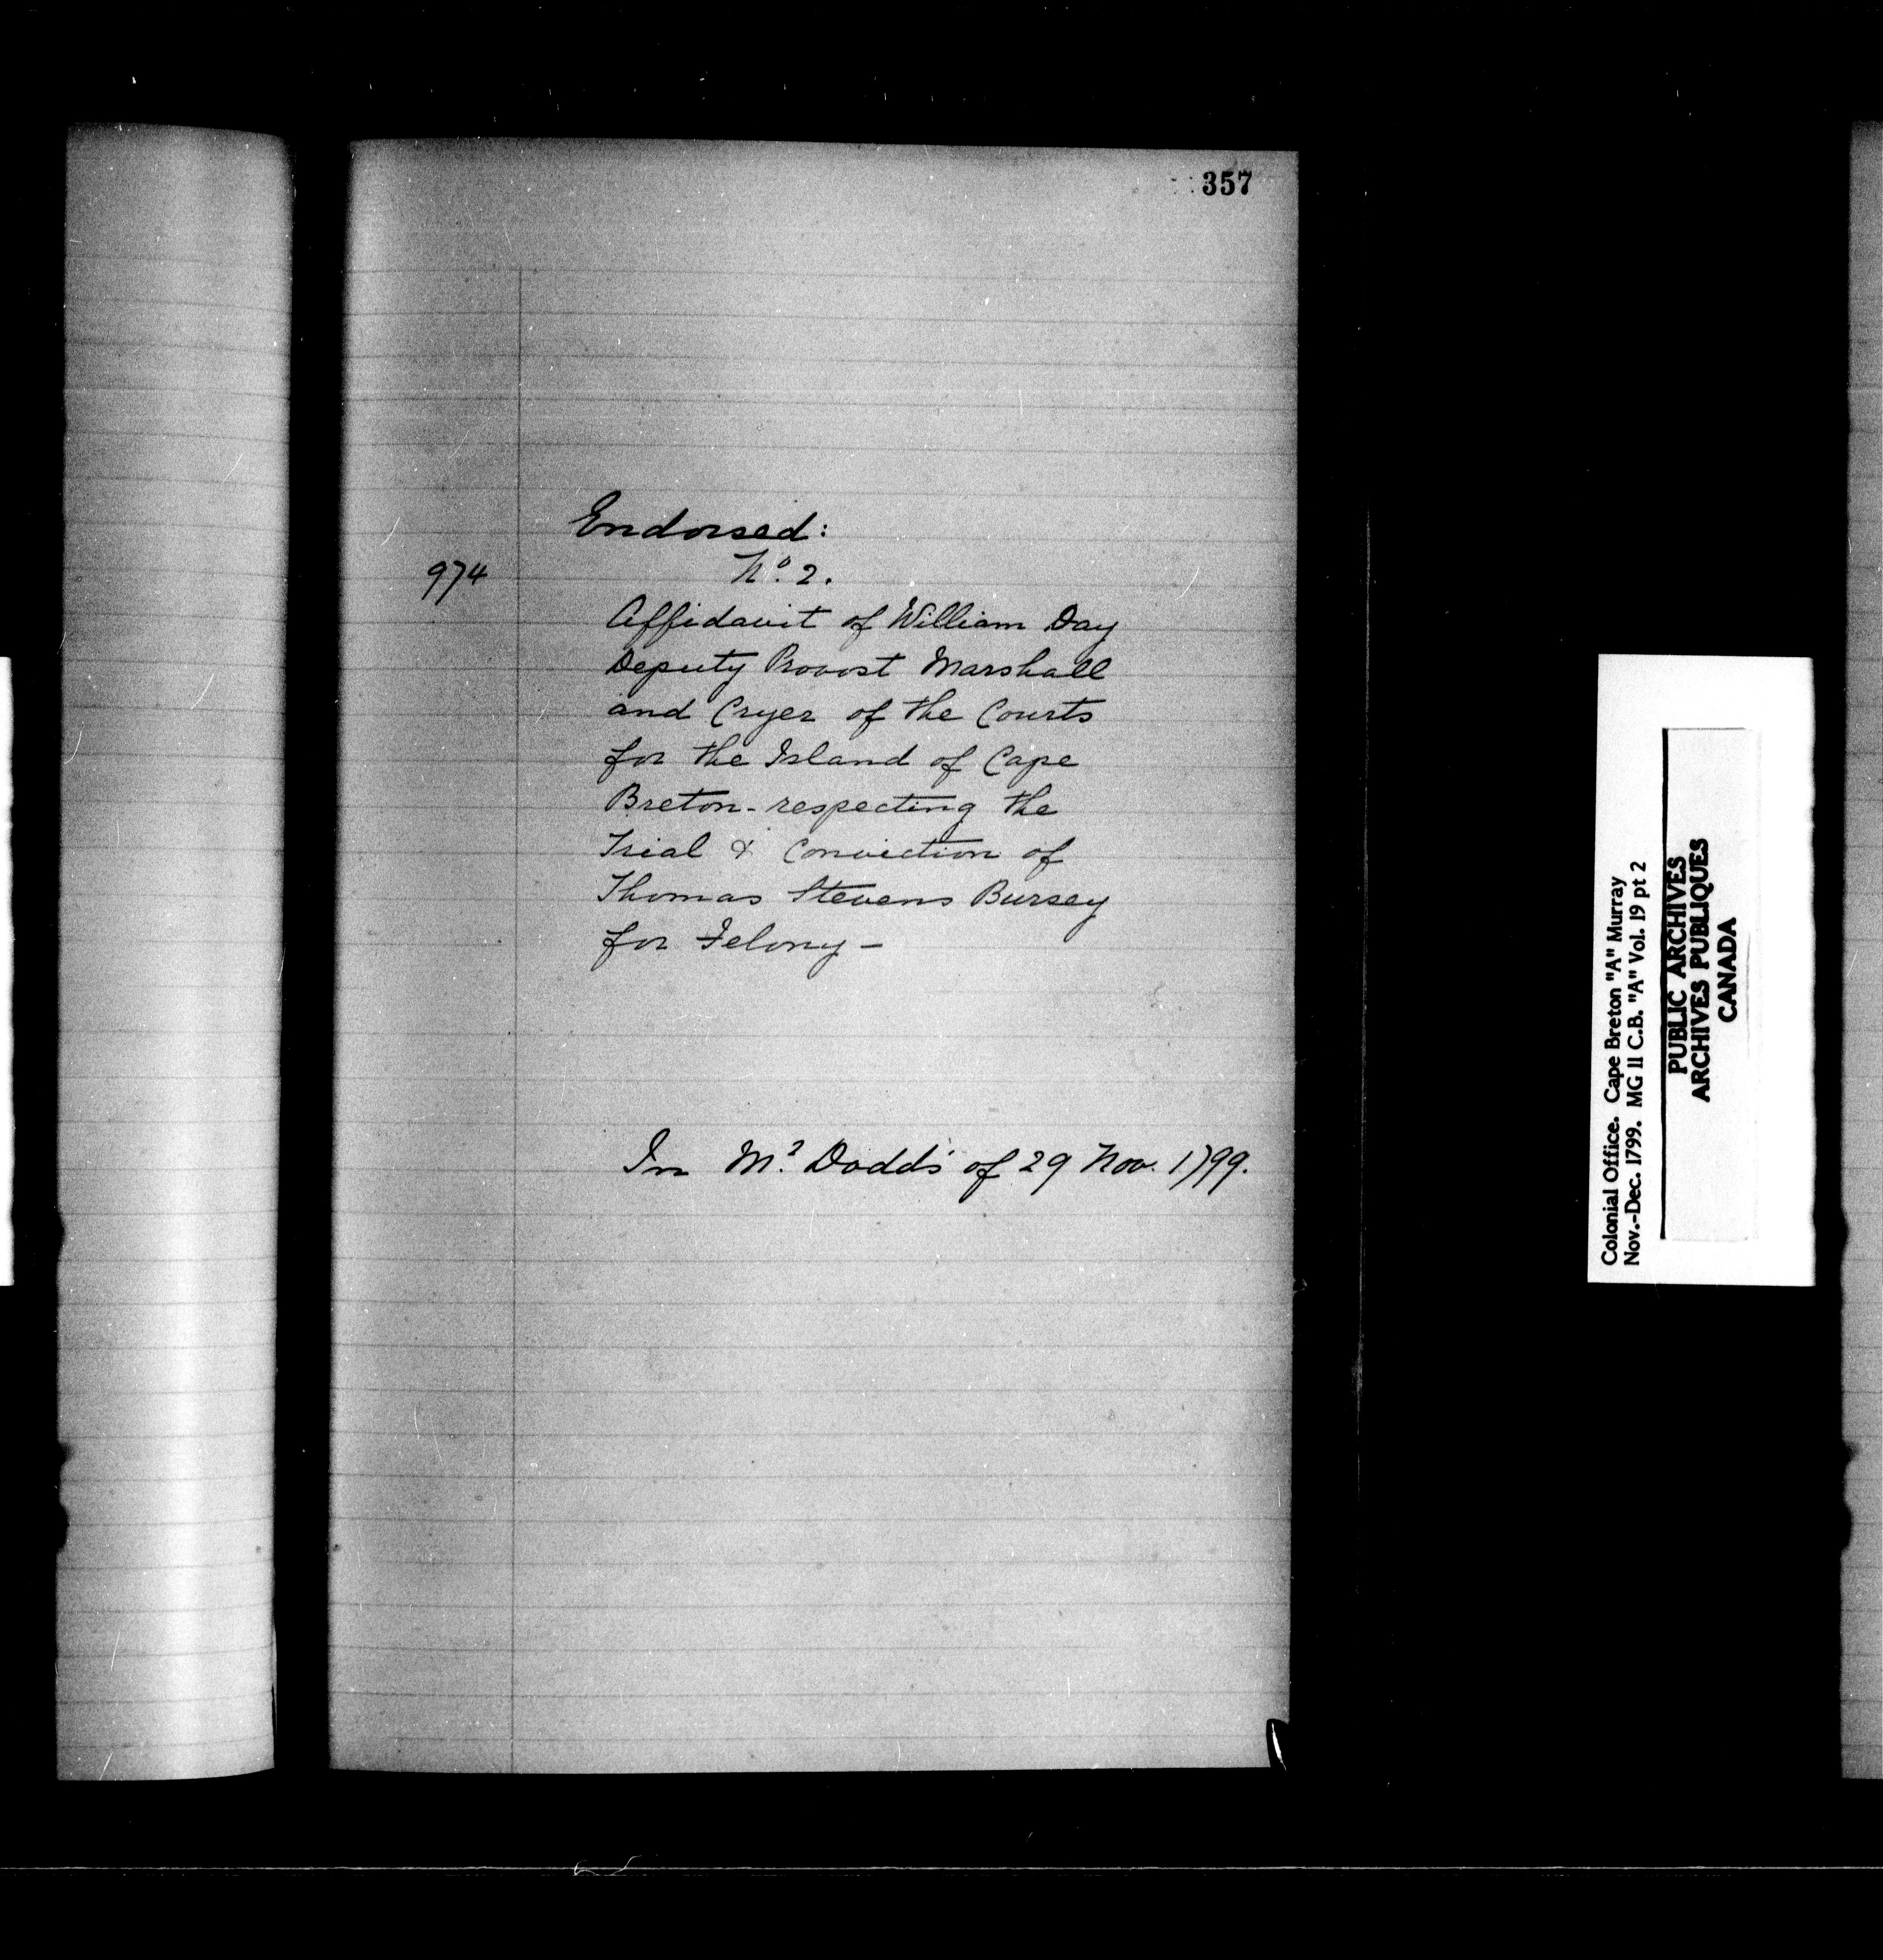 357
Endorsed:
974
No. 2.
Affidavit of William Day
Deputy Provost Marshall
and Cryer of the Courts
for the Island of Cape
Breton - respecting the
Trial & Conviction of
Thomas Stevens Bursey
for Felony -
In Mr. Dodd's of 29 Nov. 1799.
Colonial Office. Cape Breton "A" Murray
Nov.-Dec. 1799. MG 11 C.B. "A" Vol. 19 pt 2
PUBLIC ARCHIVES
ARCHIVES PUBLIQUES
CANADA